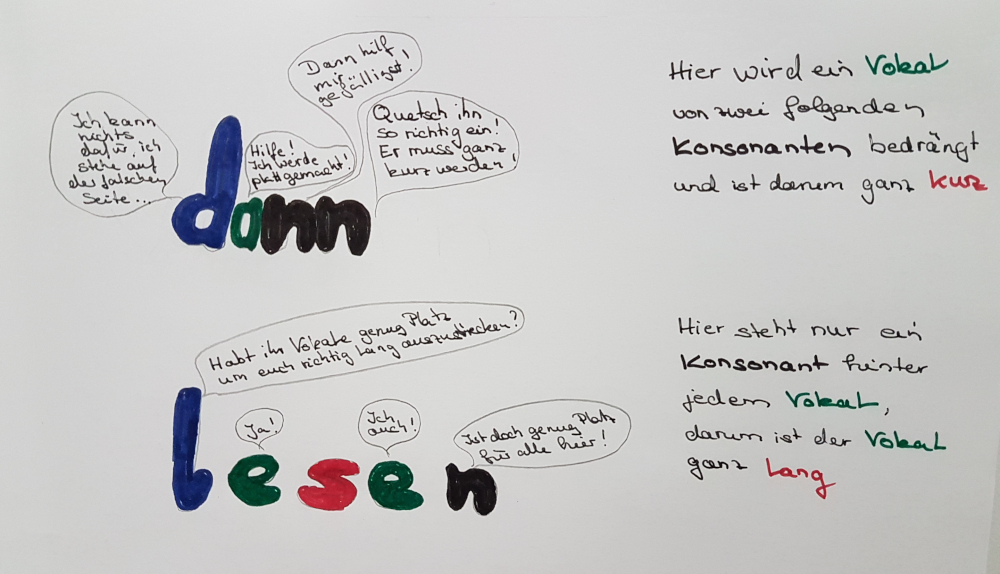 Dann hilf
mir
gefälligst!
Ich kann
nichts
dafür, ich
stehe auf
der falschen
Seite...
Hilfe!
Ich werde
plattgemacht!
Quetsch ihn
so richtig ein!
Er muss ganz
kurz werden!
dann
Hier wird ein Vokal
von zwei folgenden
Konsonanten bedrängt
und ist darum ganz kurz
Habt ihr Vokale genug Platz
um euch richtig lang auszustrecken?
Ja!
Ich
auch!
Ist doch genug Platz
für alle hier!
lesen
Hier steht nur ein
Konsonant hinter
jedem Vokal,
darum ist der Vokal
ganz lang